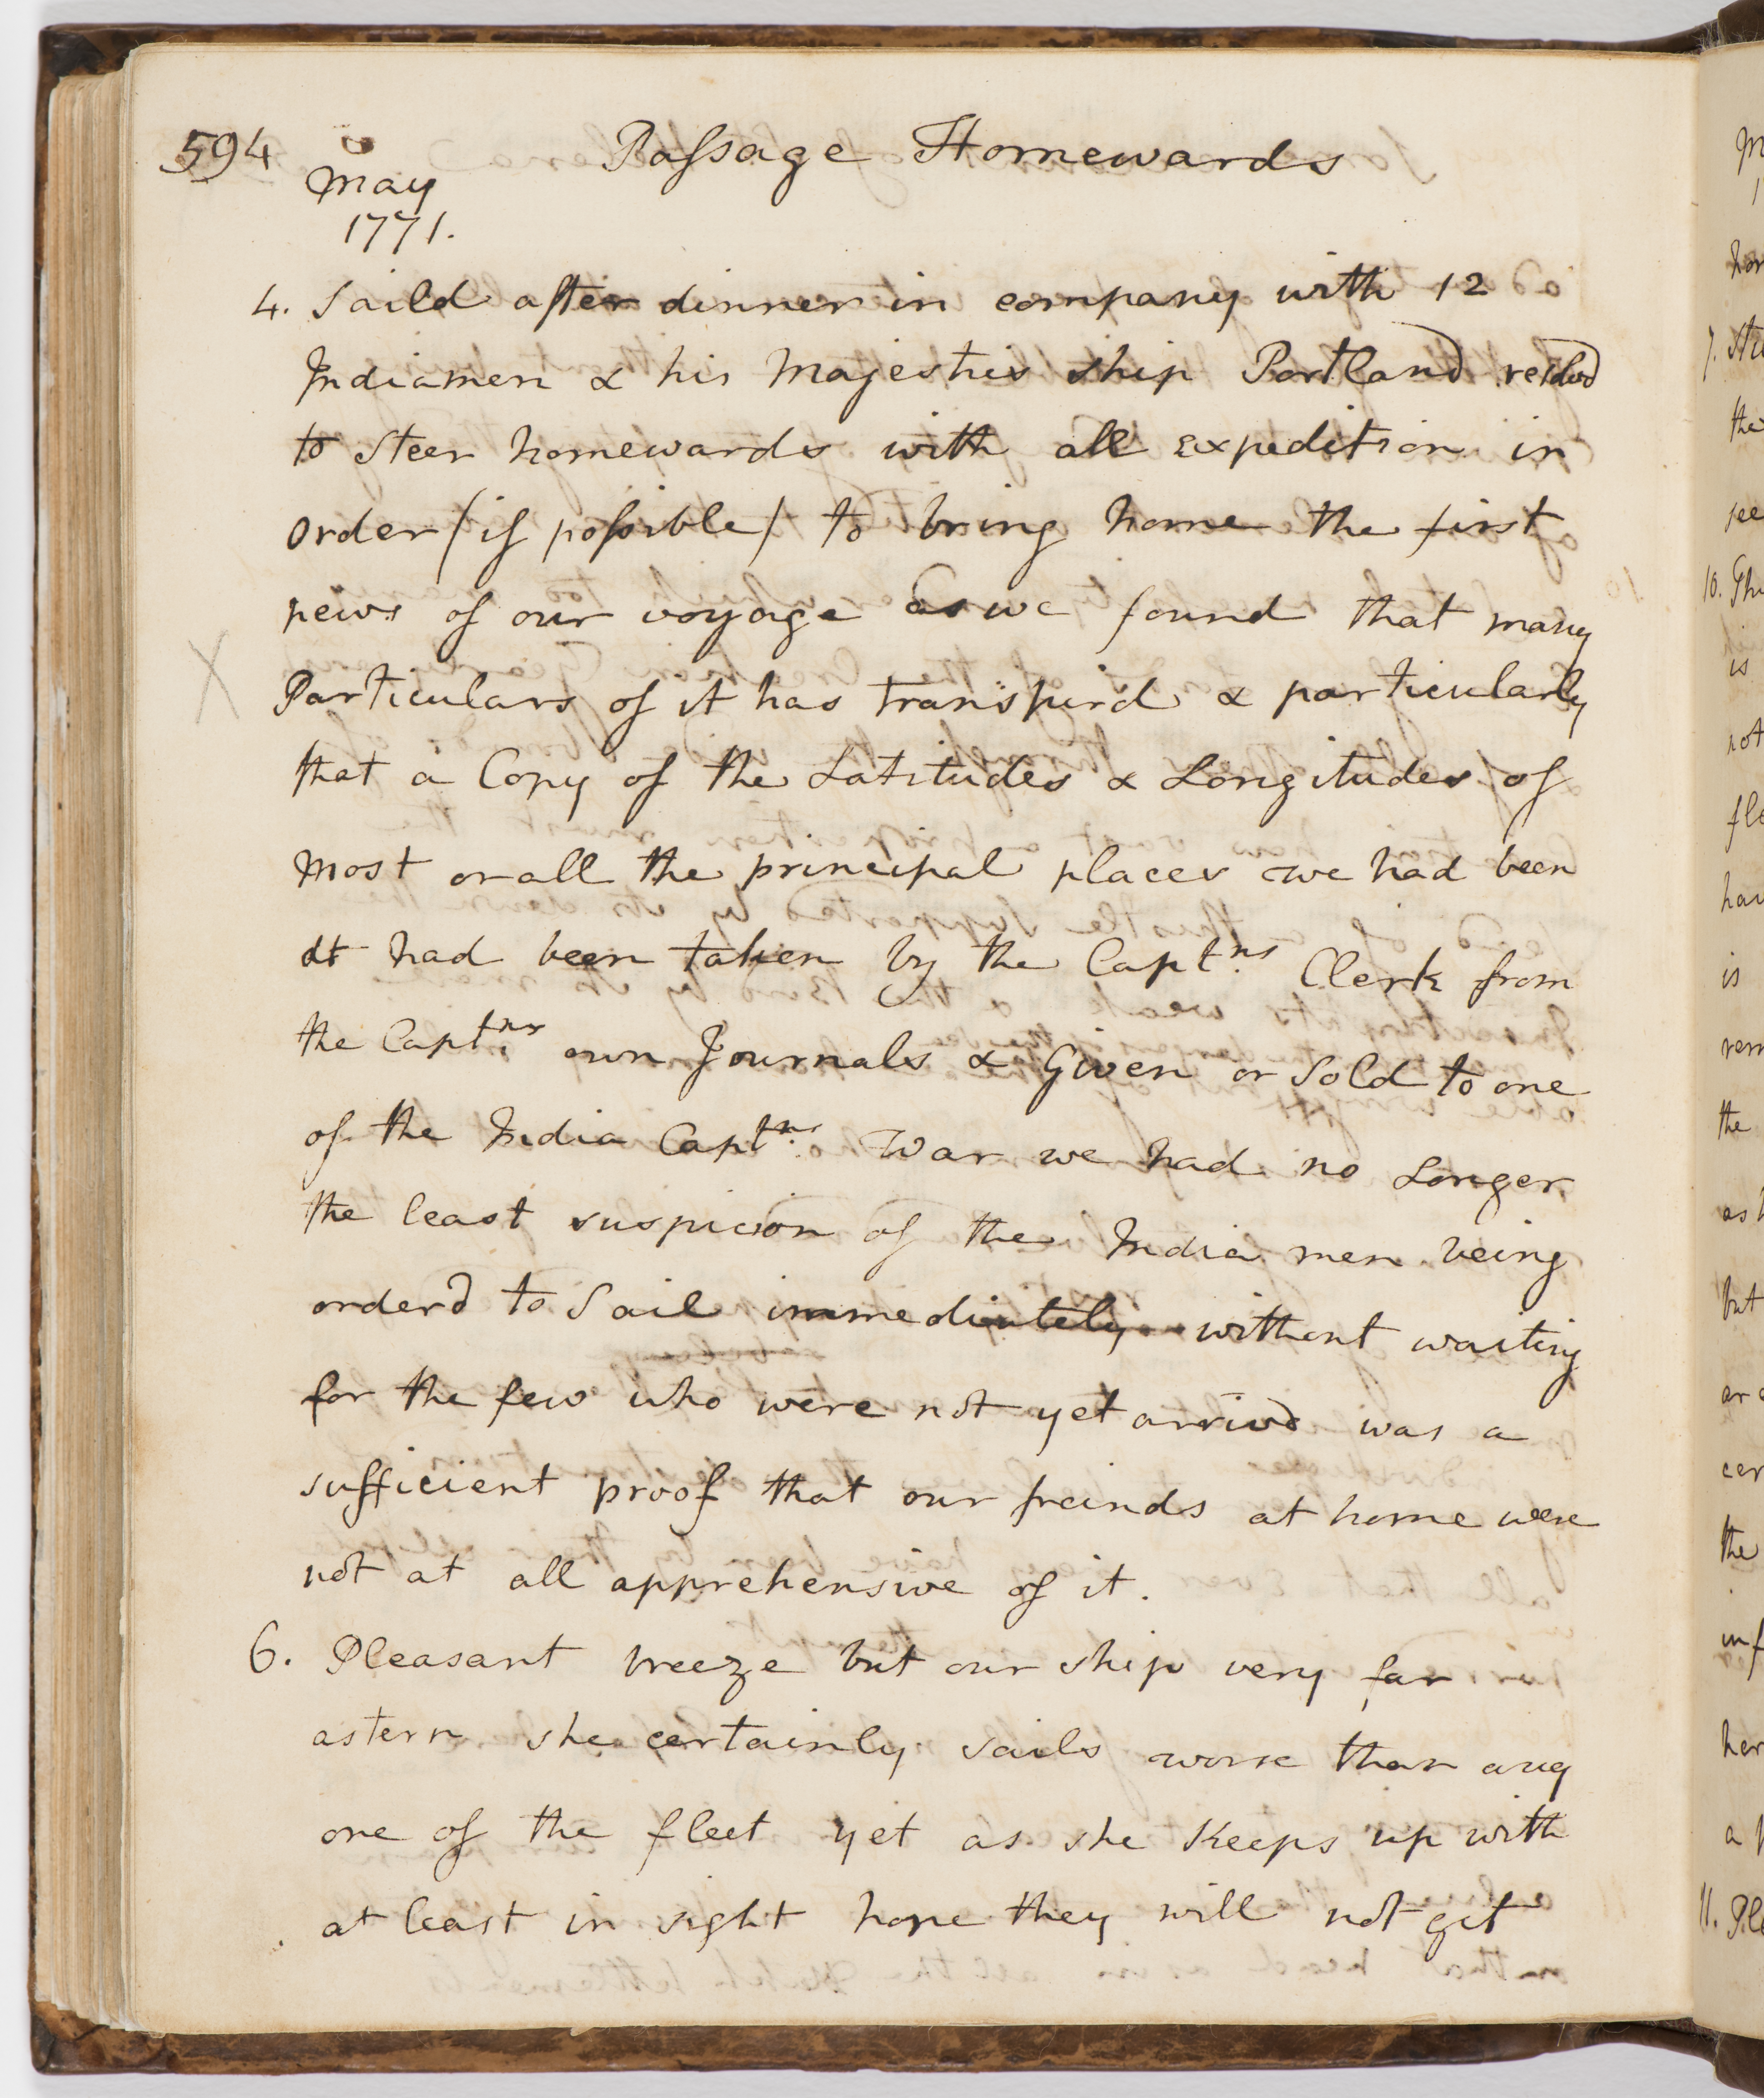 594
May
1771.
Passage Homewards
4. Saild after dinner in company with 12
Indiamen & his Majesties ship Portland resolvd
to steer homewards with all expedition in
order (if possible) to bring home the first
news of our voyage as we found that many
Particulars of it has transpird & particularly
that a Copy of the Latitudes & Longitudes of
most or all the principal places we had been
at had been taken by the Captns Clerk from
the Captns own Journals & Given or Sold to one
of the India Captns. War we had no Longer
the least suspicion of the India men being
orderd to Sail immediately without waiting
for the few who were not yet arrivd was a
sufficient proof that our freinds at home were
not at all apprehensive of it.
6. Pleasant breeze but our ship very far
astern she certainly sails worse than any
one of the fleet yet as she Keeps up with
at least in sight hope they will not get
7.
the
see
10.
is
not
is
the
but
the
her
a
11.